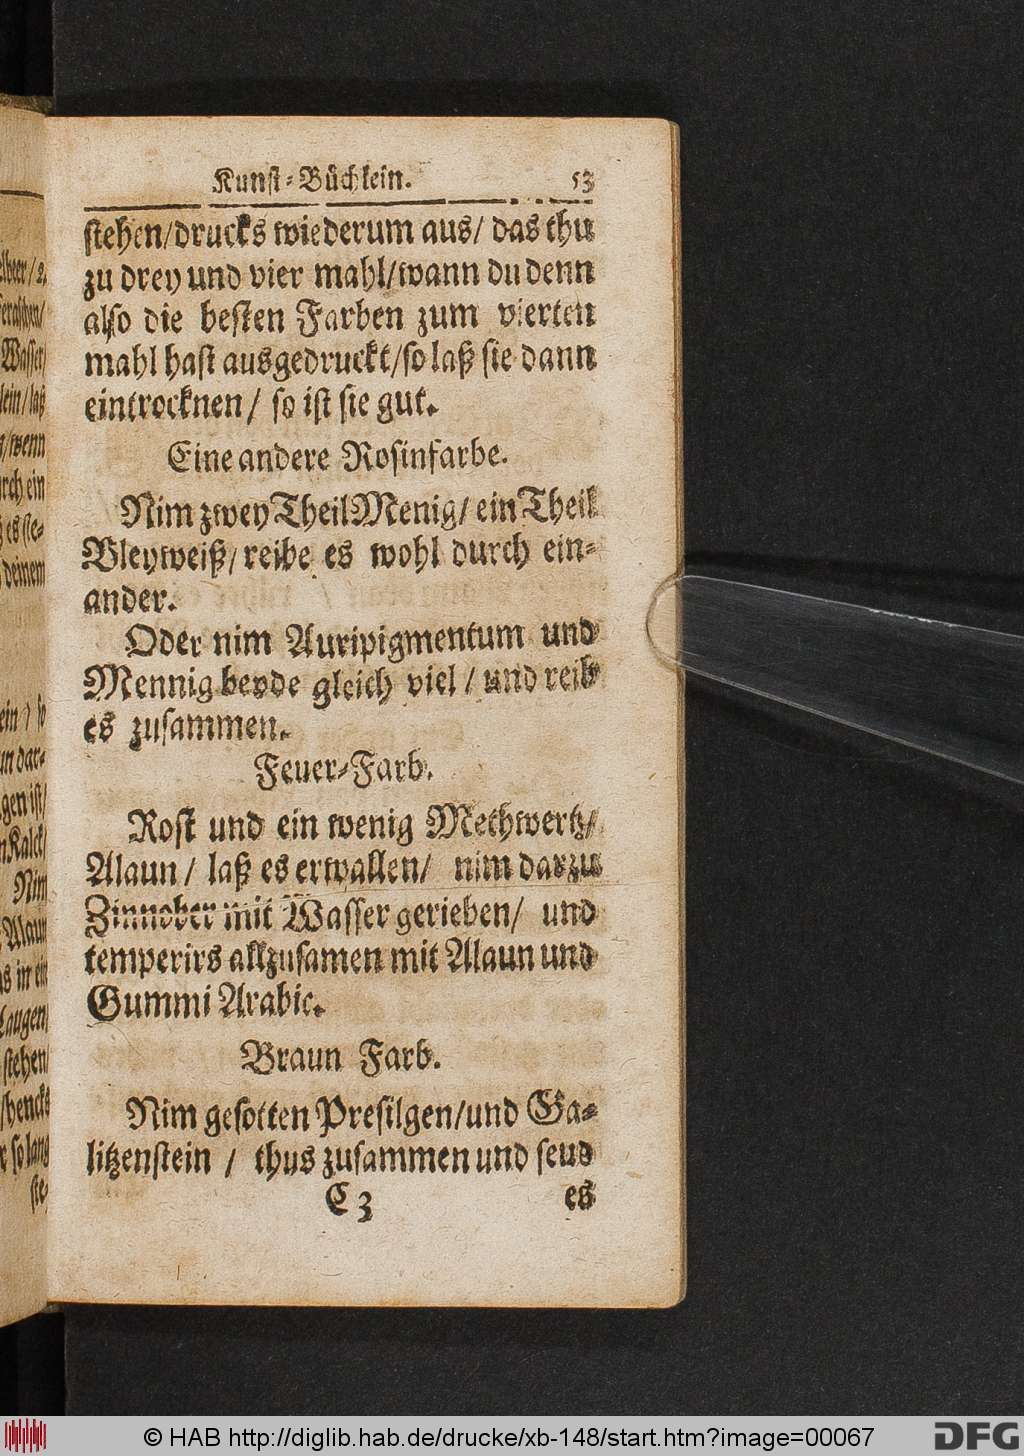 Kunst-Büchlein. 53
stehen/drucks wiederum aus/ das thu
zu drey und vier mahl/wann du denn
also die besten Farben zum vierten
mahl hast ausgedruckt/so laß sie dann
eintrocknen/ so ist sie gut.
Eine andere Rosinfarbe.
Nim zwey Theil Menig/ ein Theil
Bleyweiß/ reibe es wohl durch ein-
ander.
Oder nim Auripigmentum und
Mennig beyde gleich viel / und reib
es zusammen.
Feuer-Farb.
Rost und ein wenig Methwertz/
Alaun / laß es erwallen/ nim darzu
Zinnober mit Wasser gerieben/ und
temperirs allzusamen mit Alaun und
Gummi Arabic.
Braun Farb.
Nim gesotten Presilgen/und Ga-
litzenstein / thus zusammen und seud
C 3 es
2.
Wasser/
lein/ laß
/wenn
durch ein
es ste-
deinem
ein / so
dar-
gen ist/
Kalck/
Nim
Alaun
in ein
Laugen/
stehen/
so lang
ste-
© HAB http://diglib.hab.de/drucke/xb-148/start.htm?image=00067
DFG